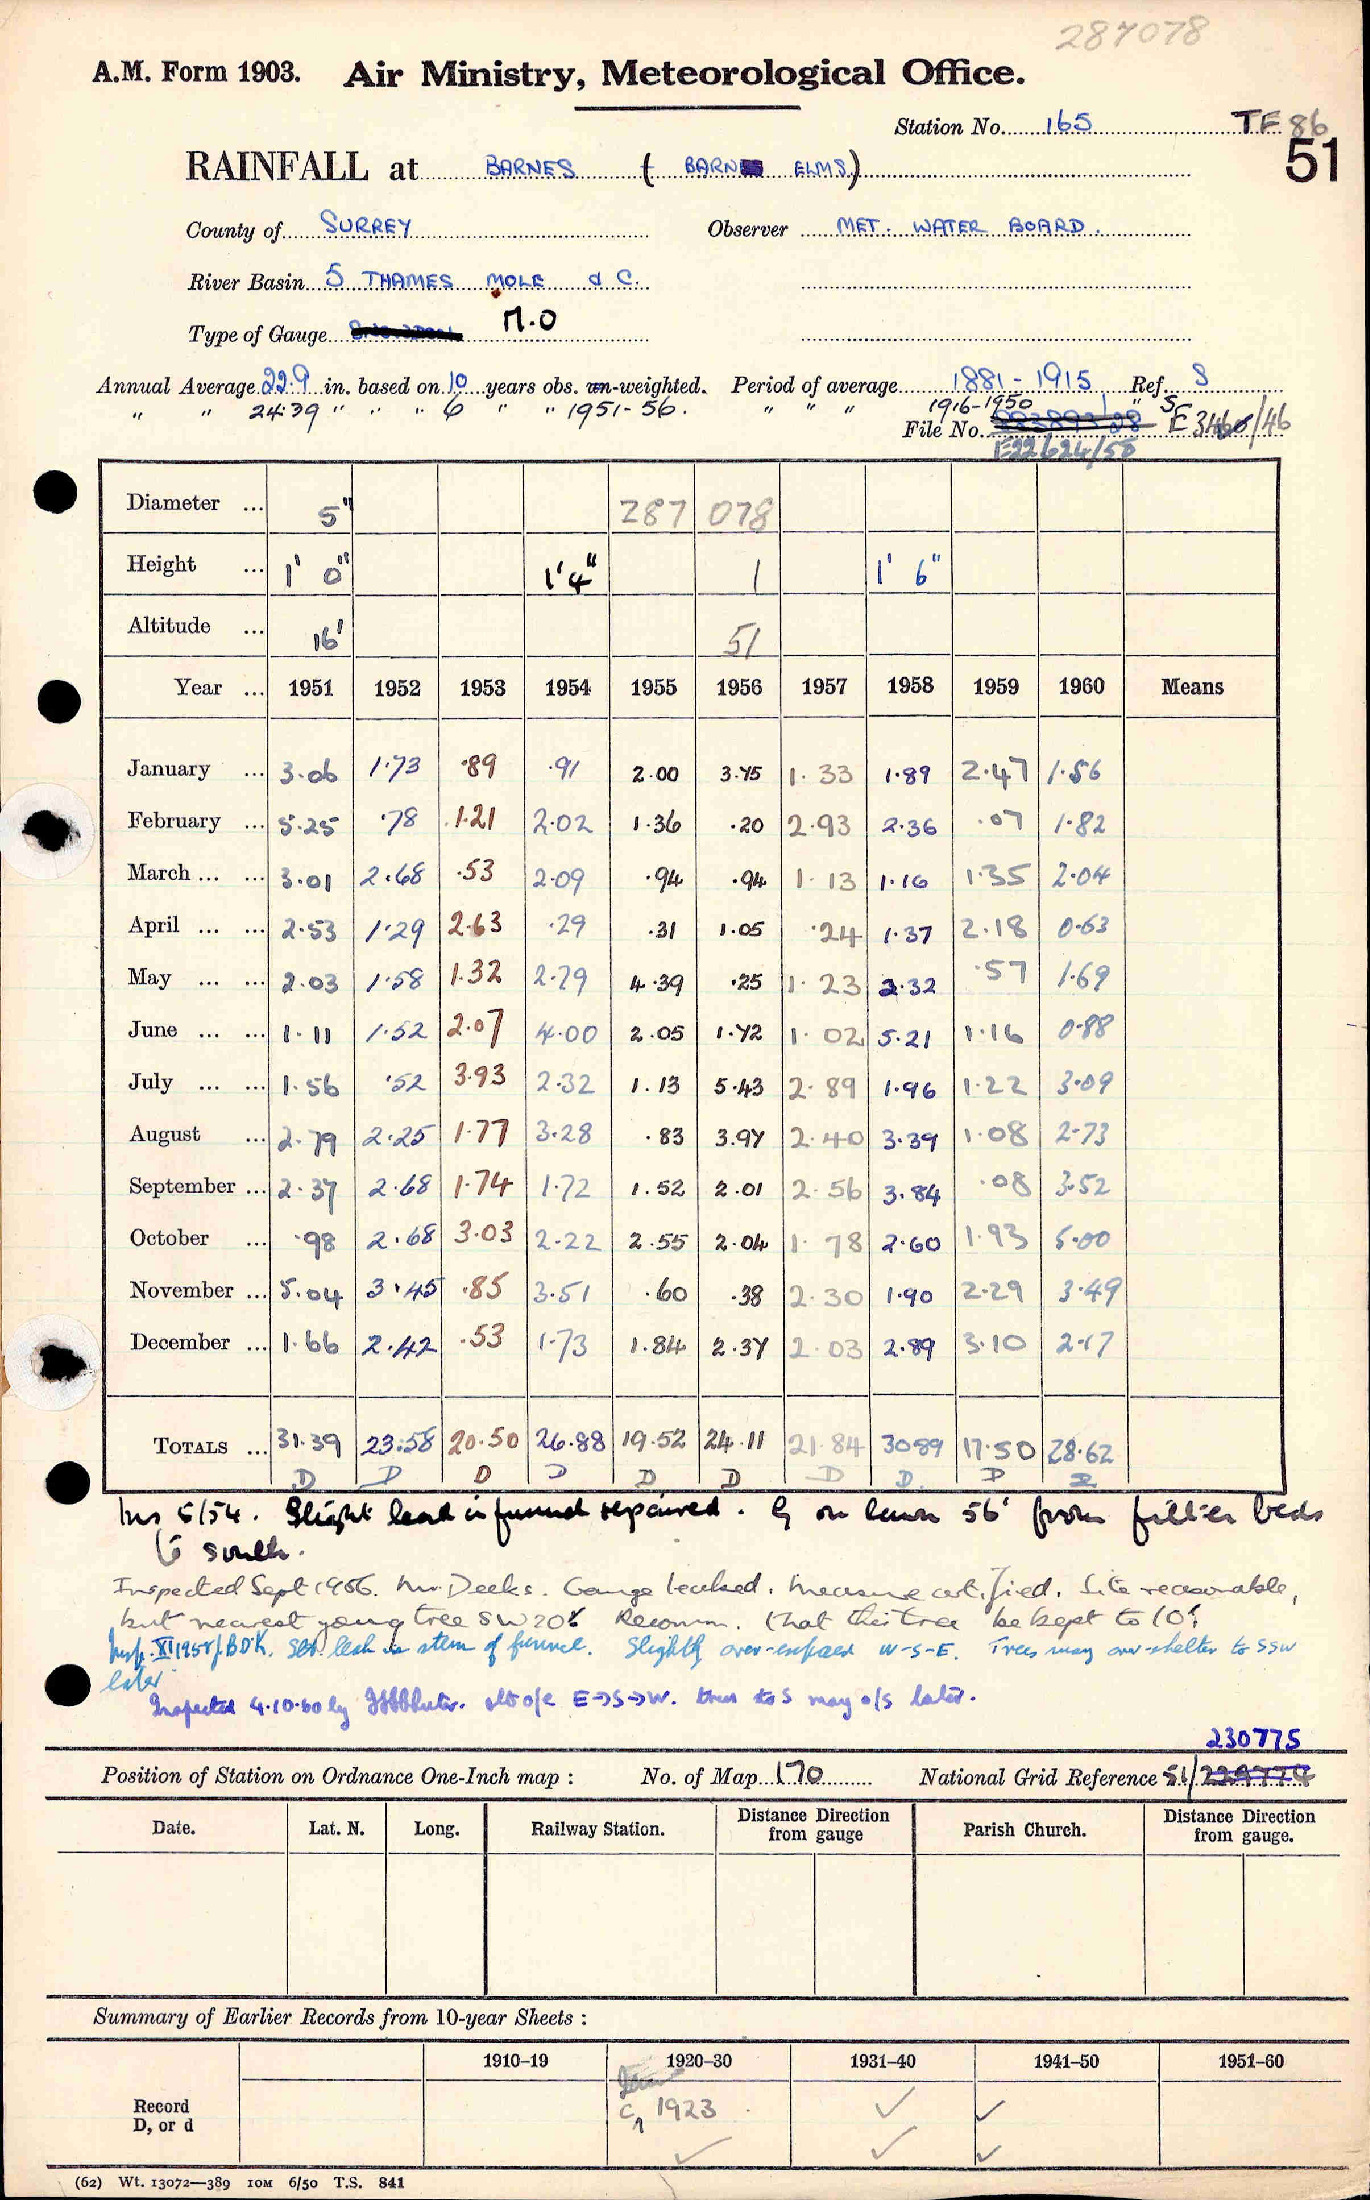 287078
A.M. Form 1903. Air Ministry, Meteorological Office.
Station No. 165 TF 86
51
RAINFALL at BARNES ( BARNES ELMS )
County of SURREY Observer MET. WATER BOARD.
River Basin 5 THAMES MOLE & C.
Type of Gauge M.O
Annual Average 22.9 in. based on 10 years obs. un-weighted. Period of average 1881 - 1915 Ref. S
" " 24.39 " " " 6 " " 1951-56. " " " 1916-1950 " S
File No. 883893/28 E3460/46
E22624/58
Diameter ... 5" 287 078
Height ... 1' 0" 1'4" 1 1' 6"
Altitude ... 16' 51
Year ... 1951 1952 1953 1954 1955 1956 1957 1958 1959 1960 Means
January ... 3.06 1.73 .89 .91 2.00 3.75 1.33 1.89 2.47 1.56
February ... 5.25 .78 1.21 2.02 1.36 .20 2.93 2.36 .07 1.82
March ... ... 3.01 2.68 .53 2.09 .94 .94 1.13 1.16 1.35 2.04
April ... ... 2.53 1.29 2.63 .29 .31 1.05 .24 1.37 2.18 0.63
May ... ... 2.03 1.58 1.32 2.79 4.39 .25 1.23 2.32 .57 1.69
June ... ... 1.11 1.52 2.07 4.00 2.05 1.72 1.02 5.21 1.16 0.88
July ... ... 1.56 .52 3.93 2.32 1.13 5.43 2.89 1.96 1.22 3.09
August ... 2.79 2.25 1.77 3.28 .83 3.97 2.40 3.39 1.08 2.73
September ... 2.37 2.68 1.74 1.72 1.52 2.01 2.56 3.84 .08 3.52
October ... .98 2.68 3.03 2.22 2.55 2.04 1.78 2.60 1.93 5.00
November ... 5.04 3.45 .85 3.51 .60 .38 2.30 1.90 2.29 3.49
December ... 1.66 2.42 .53 1.73 1.84 2.37 2.03 2.89 3.10 2.17
TOTALS ... 31.39 23.58 20.50 26.88 19.52 24.11 21.84 30.89 17.50 28.62
D D D D D D D D D D
Ins 5/54. Slight leak in funnel repaired. G on lawn 56' from filter beds
to south.
Inspected Sept 1956. Mr Deeks. Gauge leaked. Measure certified. Site reasonable,
but nearest young tree SW 20' Recomm. that this tree be kept to 10'.
Insp. XI 1958 / BDK. Sev. leak in stem of funnel. Slightly over-exposed W-S-E. Trees may over-shelter to SSW
later
Inspected 4.10.60 by slt o/e E→S→W. trees to S may o/s later.
230775
Position of Station on Ordnance One-Inch map : No. of Map 170 National Grid Reference 51/229774
Date. Lat. N. Long. Railway Station. Distance Direction from gauge Parish Church. Distance Direction from gauge.
Summary of Earlier Records from 10-year Sheets :
1910-19 1920-30 1931-40 1941-50 1951-60
Record
D, or d
1923
(62) Wt. 13072—389 10M 6/50 T.S. 841